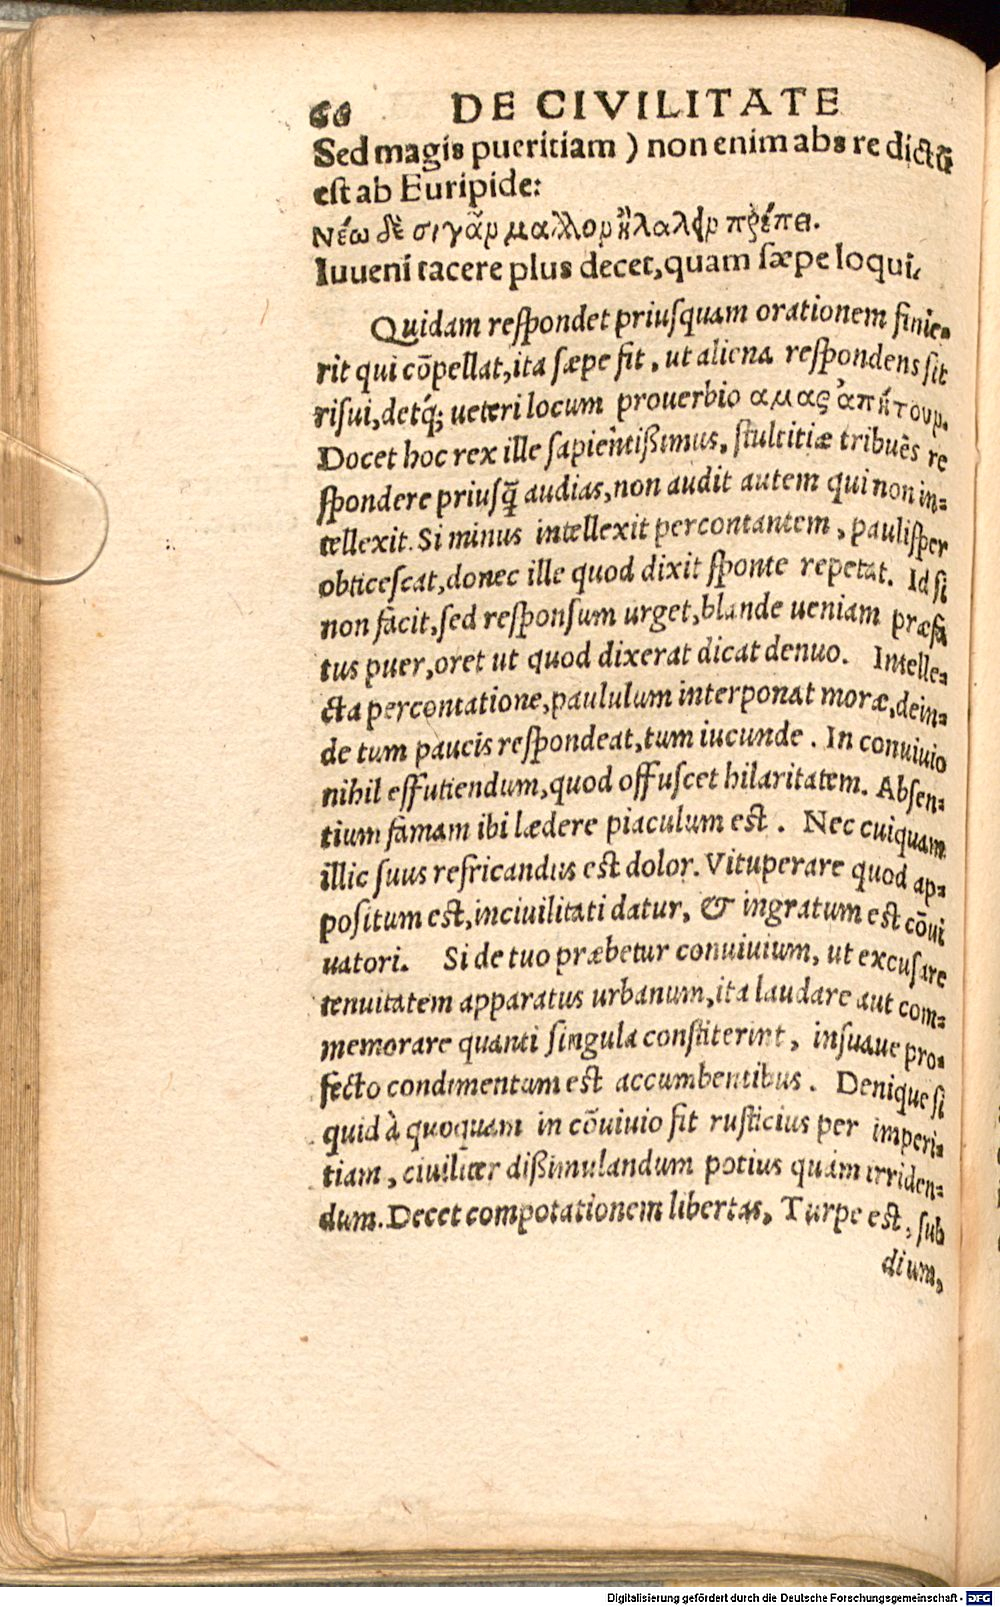 66 DE CIVILITATE
Sed magis pueritiam ) non enim abs re dictũ
est ab Euripide:
Νέω δὲ σιγᾶν μαλλον ἢ λαλεῖν πρέπει.
Iuveni tacere plus decet, quam sæpe loqui,
Quidam reſpondet priuſquam orationem finie-
rit qui cõpellat, ita ſæpe fit, ut aliena reſpondens ſit
riſui, detq́; ueteri locum prouerbio αμας ἀπῄτουν.
Docet hoc rex ille ſapientißimus, ſtultitiæ tribuẽs re
ſpondere priuſq̃ audias, non audit autem qui non in-
tellexit. Si minus intellexit percontantem, pauliſper
obticeſcat, donec ille quod dixit ſponte repetat. Id ſi
non facit, ſed reſponſum urget, blande ueniam præfa
tus puer, oret ut quod dixerat dicat denuo. Intelle-
cta percontatione, paululum interponat moræ, dein-
de tum paucis reſpondeat, tum iucunde. In conuiuio
nihil effutiendum, quod offuſcet hilaritatem. Abſen-
tium famam ibi lædere piaculum eſt. Nec cuiquam
illic ſuus refricandus eſt dolor. Vituperare quod ap-
poſitum eſt, inciuilitati datur, & ingratum eſt cõui
uatori. Si de tuo præbetur conuiuium, ut excuſare
tenuitatem apparatus urbanum, ita laudare aut com-
memorare quanti ſingula conſtiterint, inſuaue pro-
fecto condimentum eſt accumbentibus. Denique ſi
quid à quoquam in cõuiuio fit ruſticius per imperi-
tiam, ciuiliter dißimulandum potius quám irriden-
dum. Decet compotationem libertas, Turpe eſt, ſub
dium,
Digitalisierung gefördert durch die Deutsche Forschungsgemeinschaft - DFG